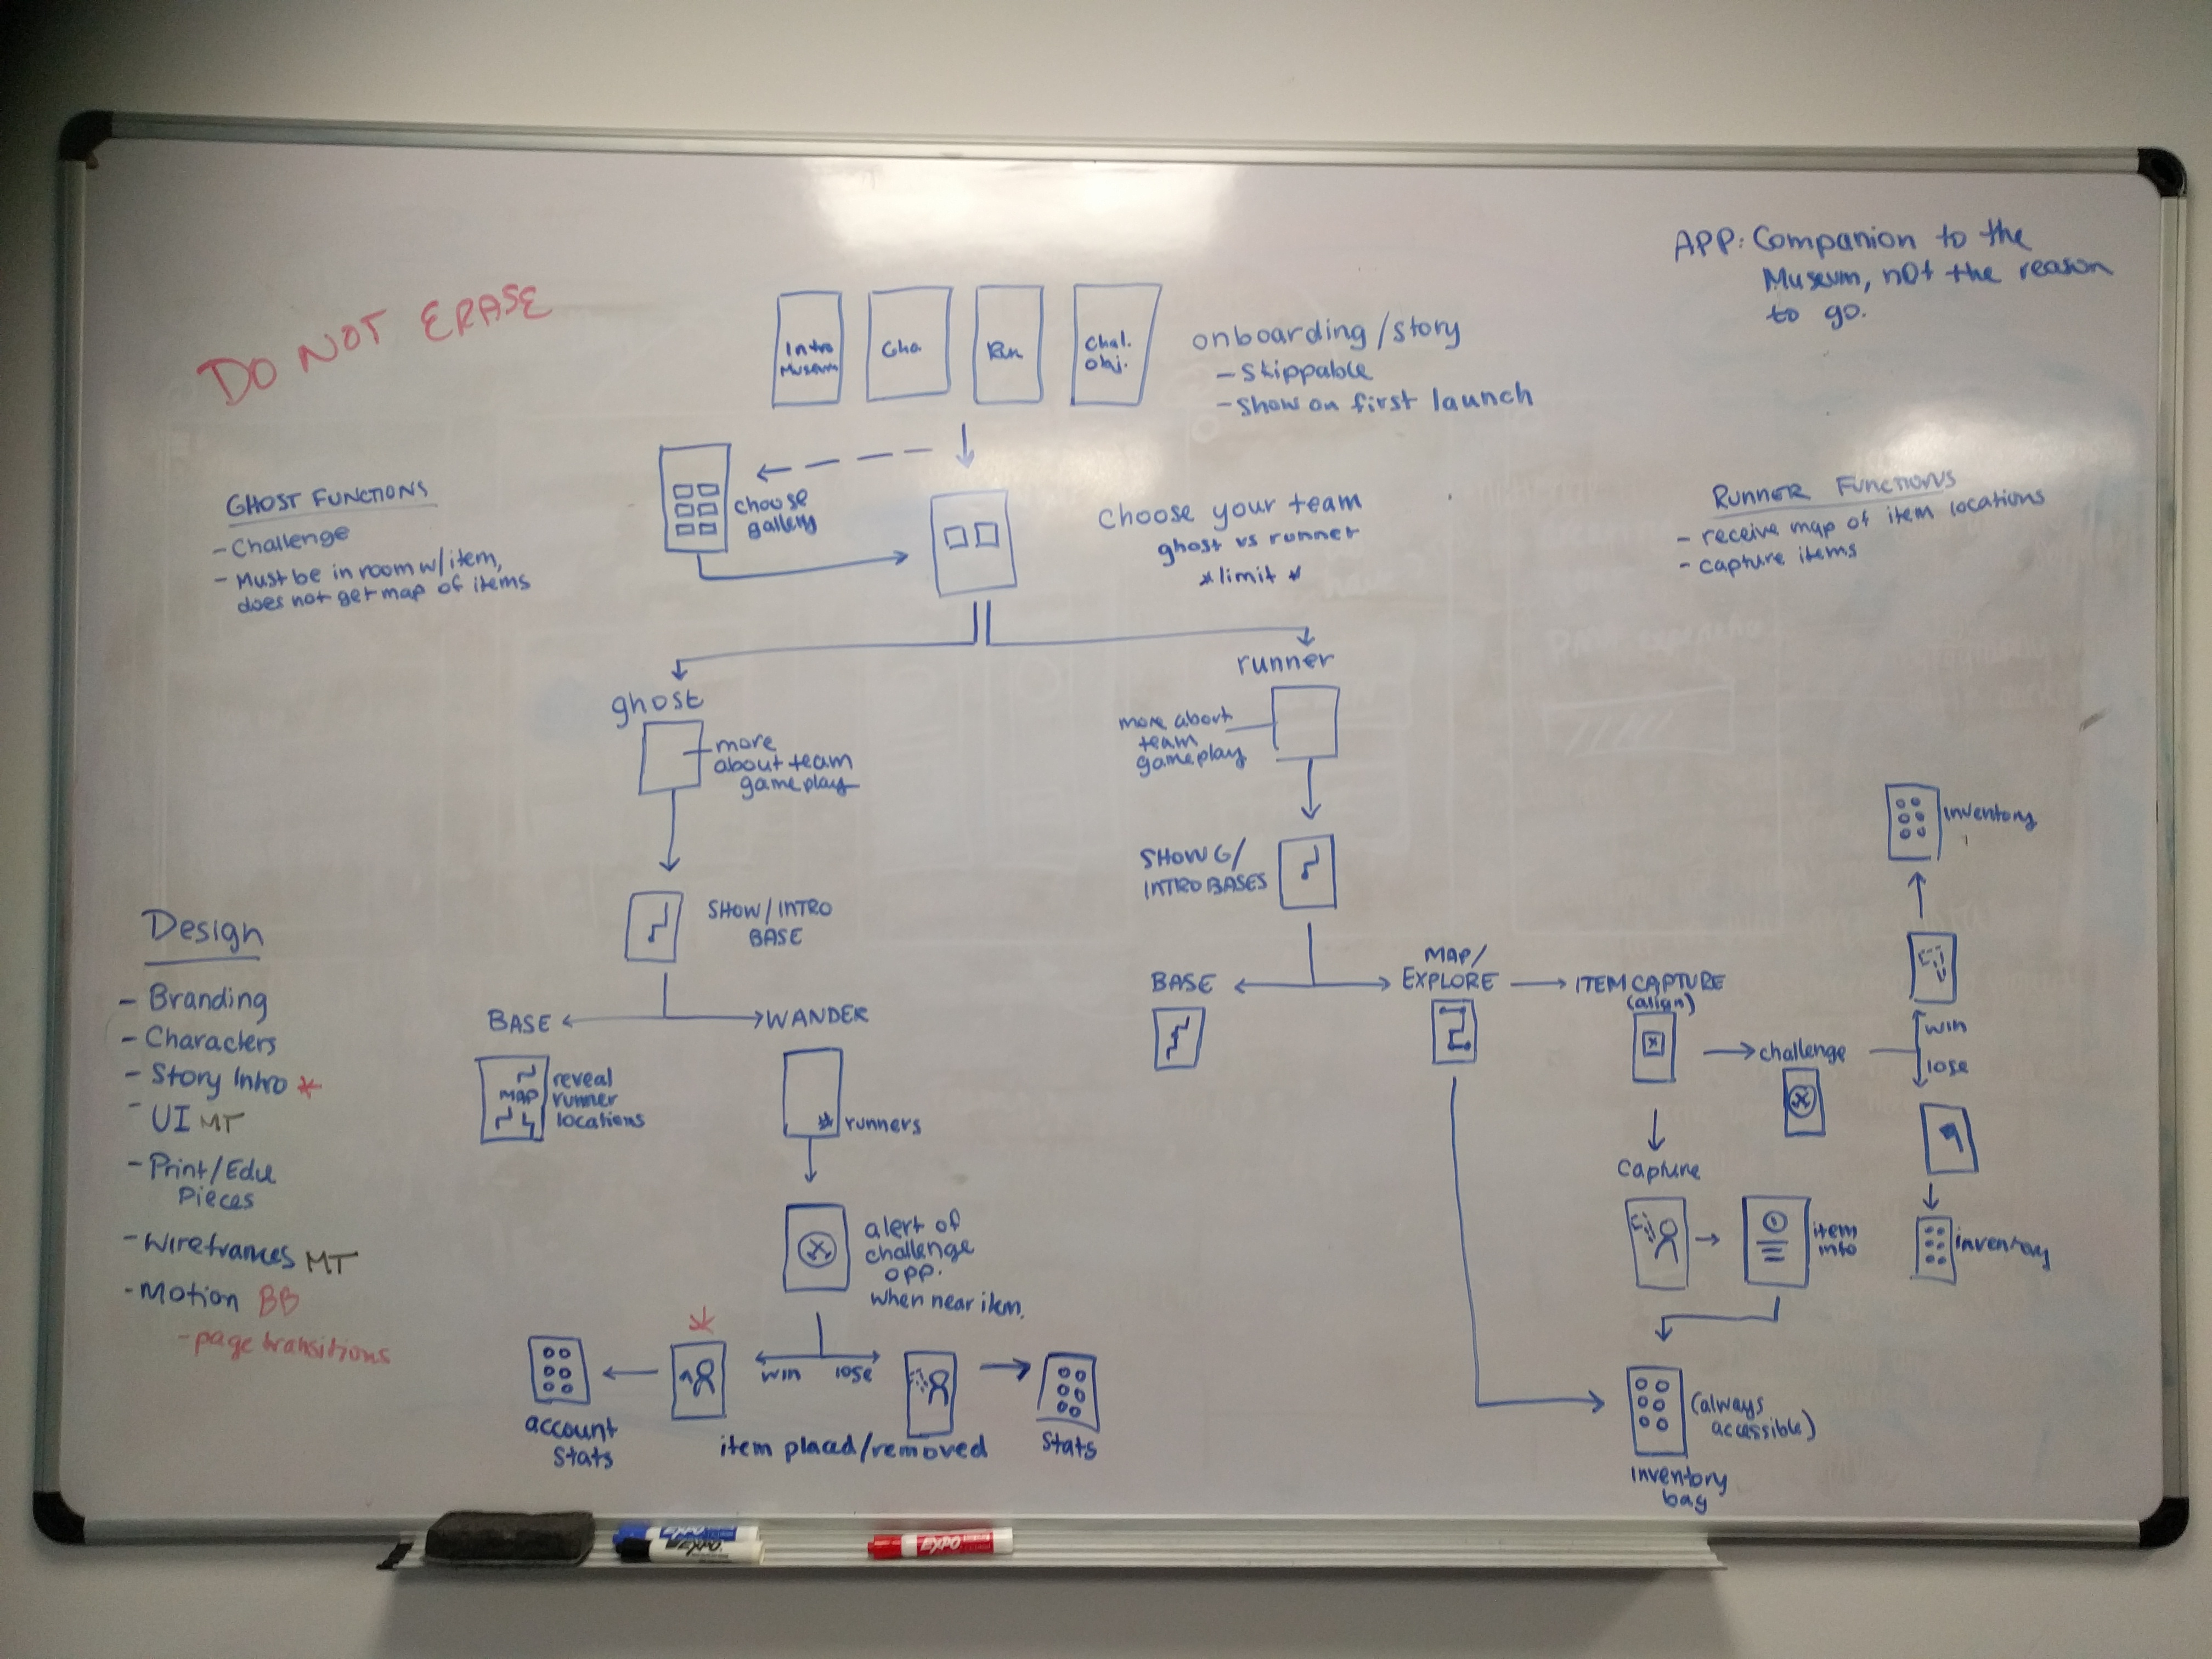 DO NOT ERASE
APP: Companion to the
Museum, not the reason
to go.
Intro
Museum
Gho.
Run
Chal.
Obj.
onboarding/story
- Skippable
- Show on first launch
choose
gallery
Choose your team
ghost vs runner
*limit*
GHOST FUNCTIONS
- Challenge
- Must be in room w/item,
does not get map of items
RUNNER FUNCTIONS
- receive map of item locations
- capture items
ghost
more
about team
gameplay
SHOW/INTRO
BASE
BASE
WANDER
MAP
reveal
runner
locations
runners
alert of
challenge
opp.
when near item.
win
lose
account
stats
item placed/removed
stats
runner
more about
team
gameplay
SHOW G/
INTRO BASES
BASE
MAP/
EXPLORE
ITEM CAPTURE
(align)
challenge
win
lose
inventory
inventory
Capture
item
info
(always
accessible)
inventory
bag
Design
- Branding
- Characters
- Story Intro *
- UI MT
- Print/Edu
Pieces
- Wireframes MT
- Motion BB
- page transitions
EXPO
EXPO
EXPO